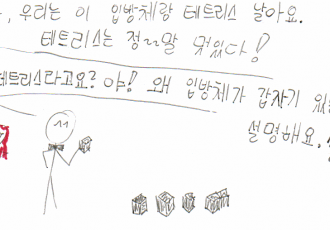 , 우리는 이 입방체랑 테트리스 날아요.
테트리스는 정~~말 멋있다!
테트리스라고요? 야! 왜 입방체가 갑자기 있
설명해요.